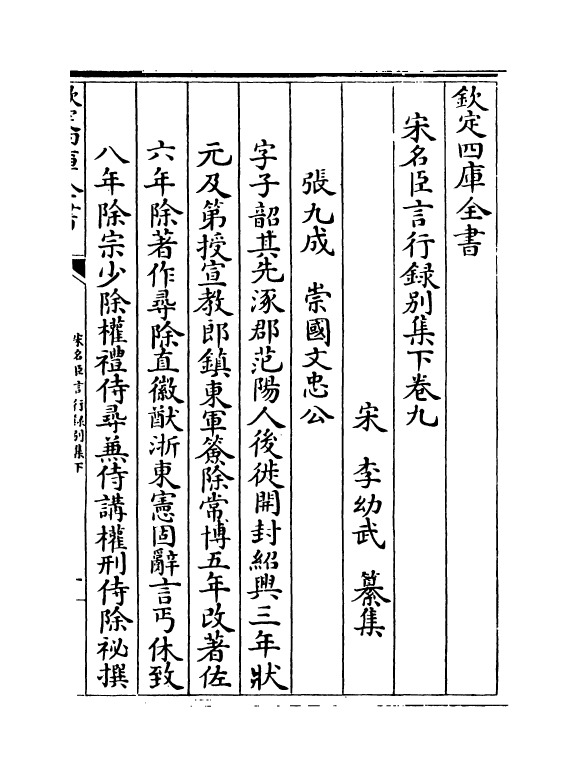 欽定四庫全書
宋名臣言行録别集下卷九
宋 李幼武 纂集
張九成 崇國文忠公
字子韶其先涿郡范陽人後徙開封紹興三年狀
元及第授宣教郎鎮東軍簽除常博五年改著佐
六年除著作尋除直徽猷浙東憲固辭言丐休致
八年除宗少除權禮侍尋兼侍講權刑侍除祕撰
欽定四庫全書
宋名臣言行録别集下
一